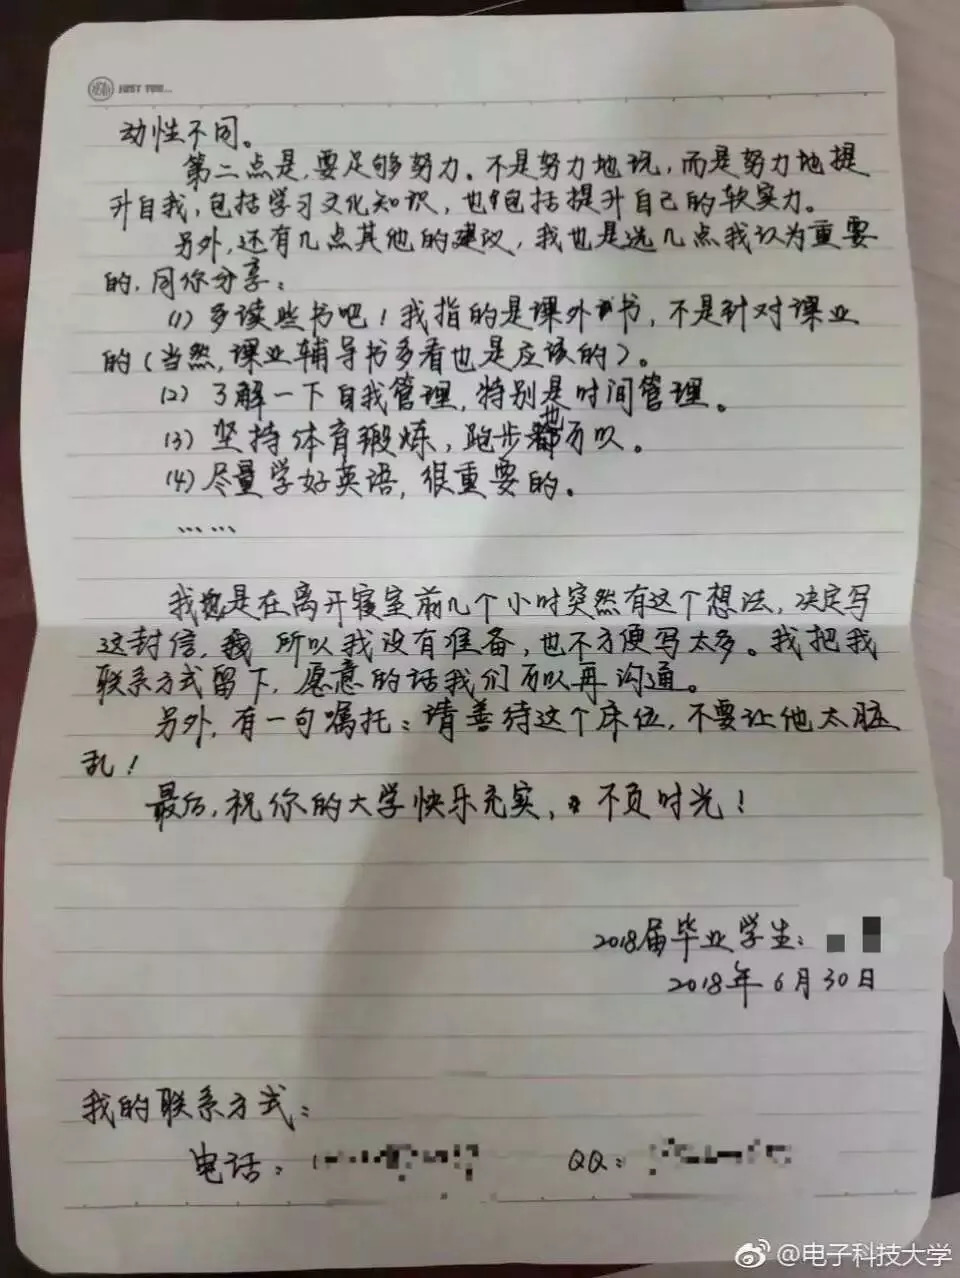 JUST YOU...
动性不同。
第二点是,要足够努力。不是努力地玩,而是努力地提
升自我,包括学习文化知识,也包括提升自己的软实力。
另外,还有几点其他的建议,我也是选几点我认为重要
的,同你分享:
(1)多读些书吧!我指的是课外书,不是针对课业
的(当然,课业辅导书多看也是应该的)。
(2)了解一下自我管理,特别是时间管理。
(3)坚持体育锻炼,跑步也可以。
(4)尽量学好英语,很重要的。
……
我是在离开寝室前几个小时突然有这个想法,决定写
这封信,所以我没有准备,也不方便写太多。我把我
联系方式留下,愿意的话我们可以再沟通。
另外,有一句嘱托:请善待这个床位,不要让他太脏
乱!
最后,祝你的大学快乐充实,不负时光!
2018届毕业学生:
2018年6月30日
我的联系方式:
电话: QQ:
@电子科技大学